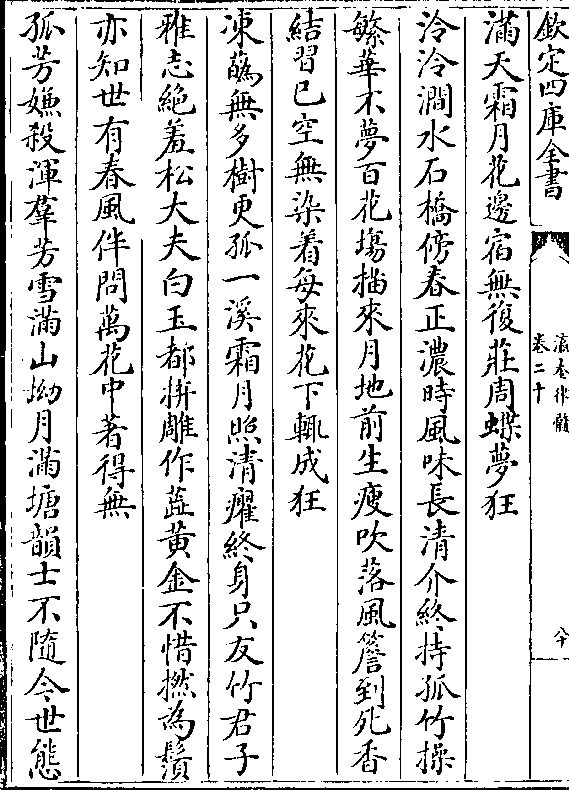 欽定四庫全書
瀛奎律髓
卷二十
六十
滿天霜月花邊宿無復莊周蝶夢狂
泠泠澗水石橋傍春正濃時風味長清介終持孤竹操
繁華不夢百花塲描來月地前生瘦吹落風簷到死香
結習已空無染着每來花下輒成狂
凍蘂無多樹更孤一溪霜月照清癯終身只友竹君子
雅志絶羞松大夫白玉都拚雕作蘂黄金不惜撚為鬚
亦知世有春風伴問萬花中著得無
孤芳嫌殺渾羣芳雪滿山坳月滿塘韻士不隨今世態